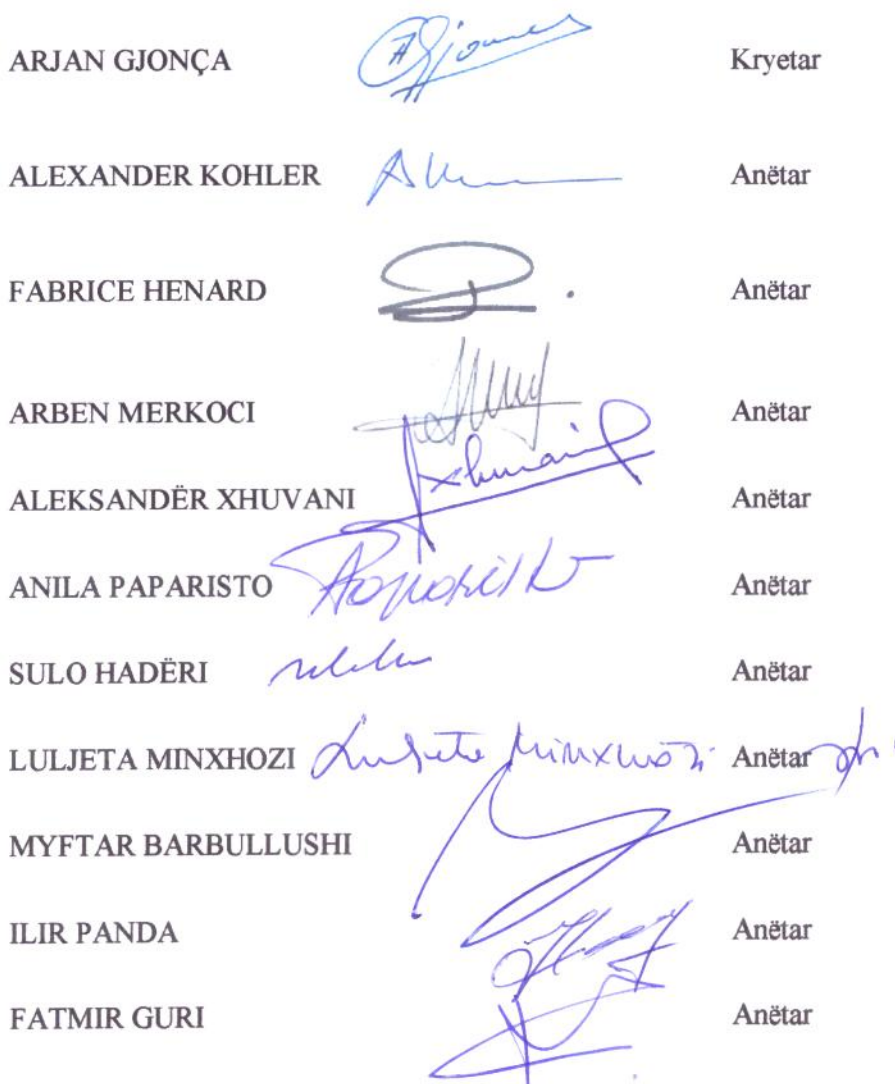 ARJAN GJONÇA Kryetar
ALEXANDER KOHLER Anëtar
FABRICE HENARD Anëtar
ARBEN MERKOCI Anëtar
ALEKSANDËR XHUVANI Xhuvani Anëtar
ANILA PAPARISTO Anëtar
SULO HADËRI Anëtar
LULJETA MINXHOZI Luljeta Minxhozi Anëtar
MYFTAR BARBULLUSHI Anëtar
ILIR PANDA Anëtar
FATMIR GURI Anëtar